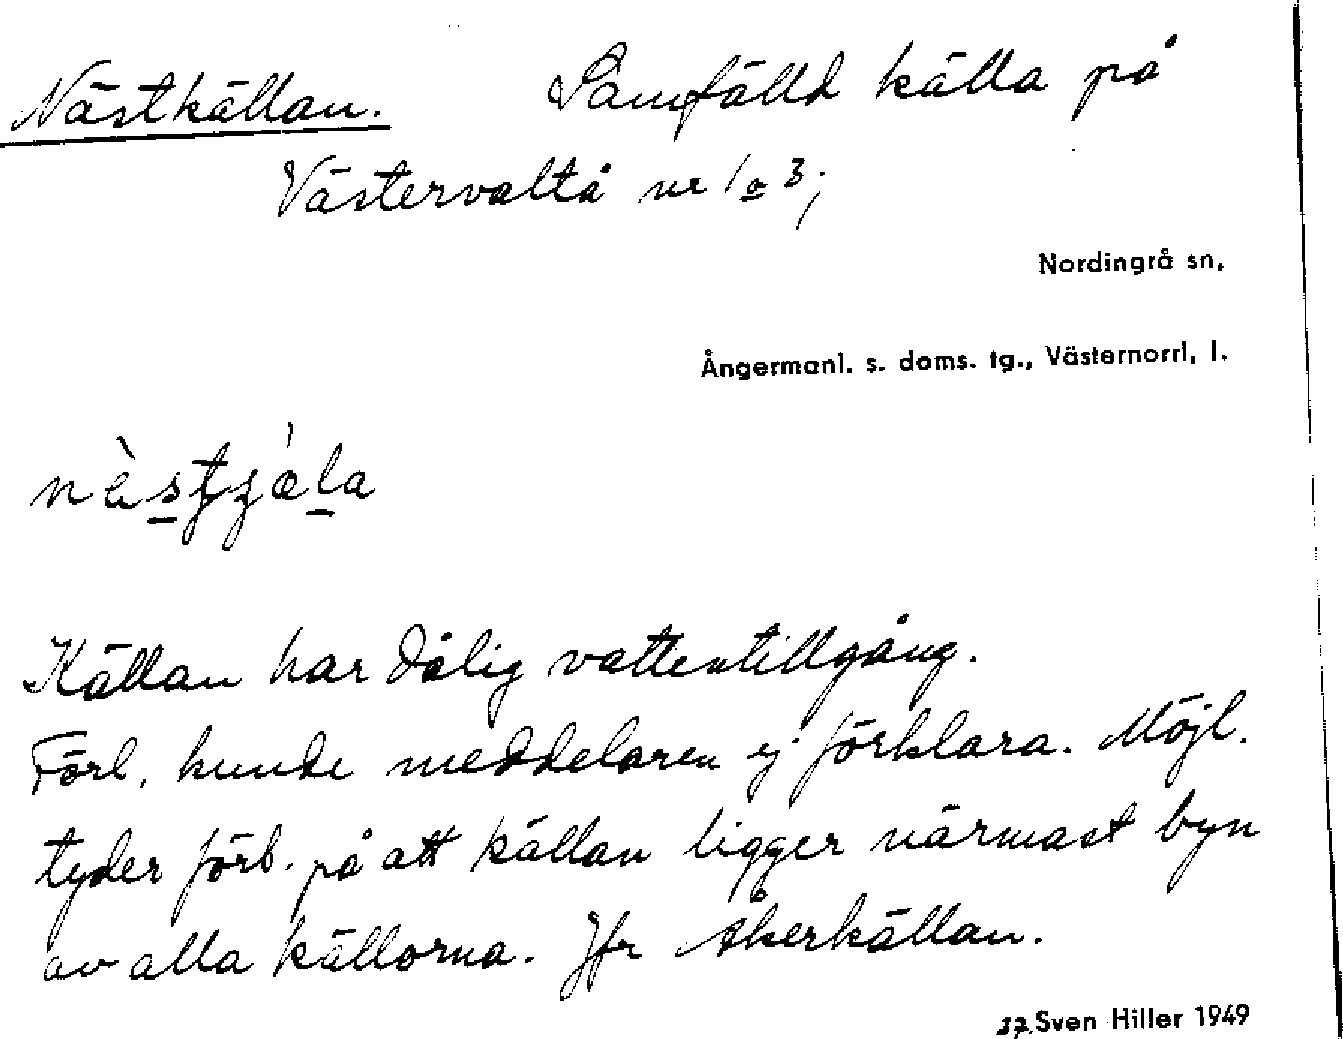 Nästkällan. Samfälld källa på
Västervaltå nr 1 o 3;
Nordingrå sn,
Ångermanl. s. doms. tg., Västernorrl. l.
Källan har dålig vattentillgång.
Förl. kunde meddelaren ej förklara. Möjl.
tyder förb. på att källan ligger närmast byn
av alla källorna. Jfr Åkerkällan.
Sven Hiller 1949